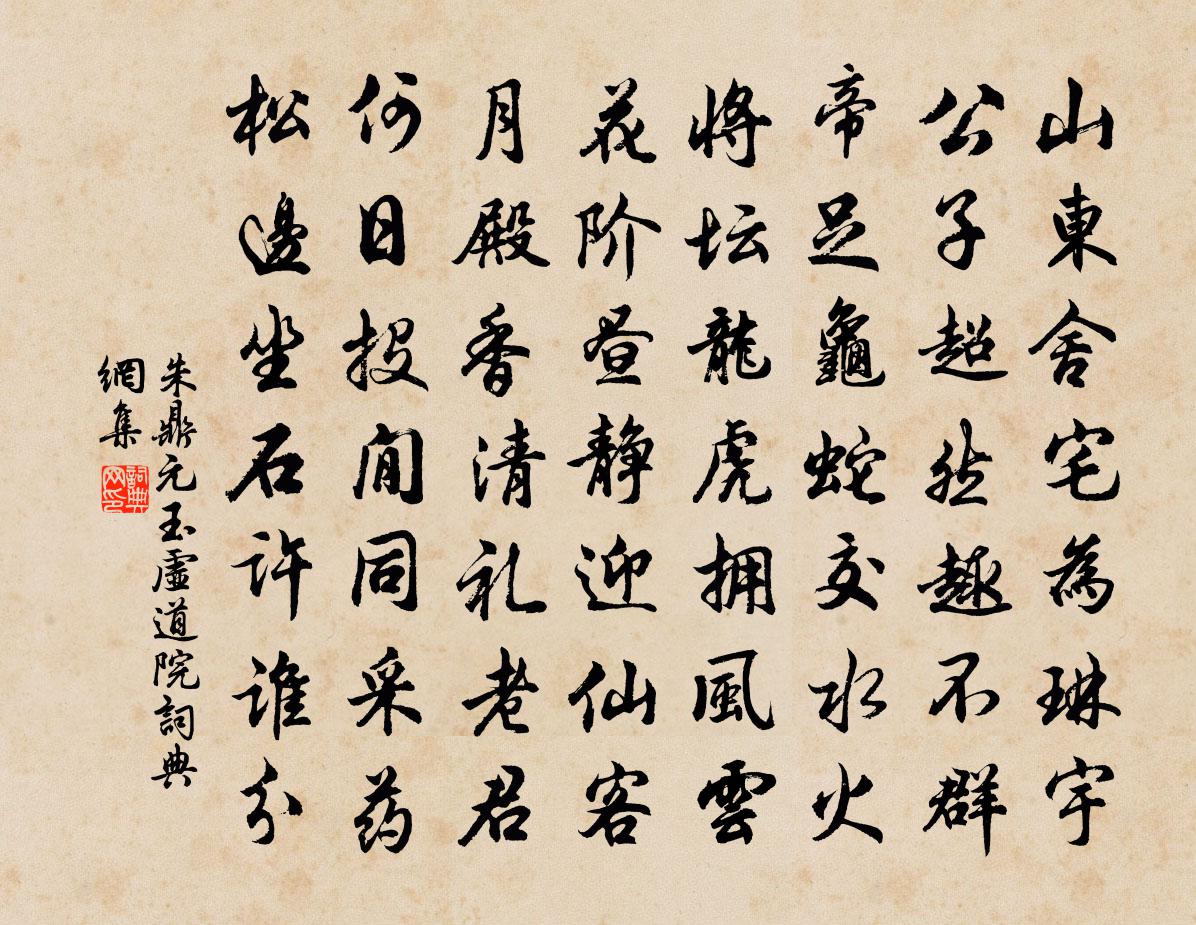 山東舍宅為琳宇
公子超然趣不群
帝足龜蛇交水火
将坛龍虎拥風雲
花阶昼静迎仙客
月殿香清礼老君
何日投闲同采药
松邊坐石許誰分
朱鼎元玉虛道院詞典
網集
詞典
网印